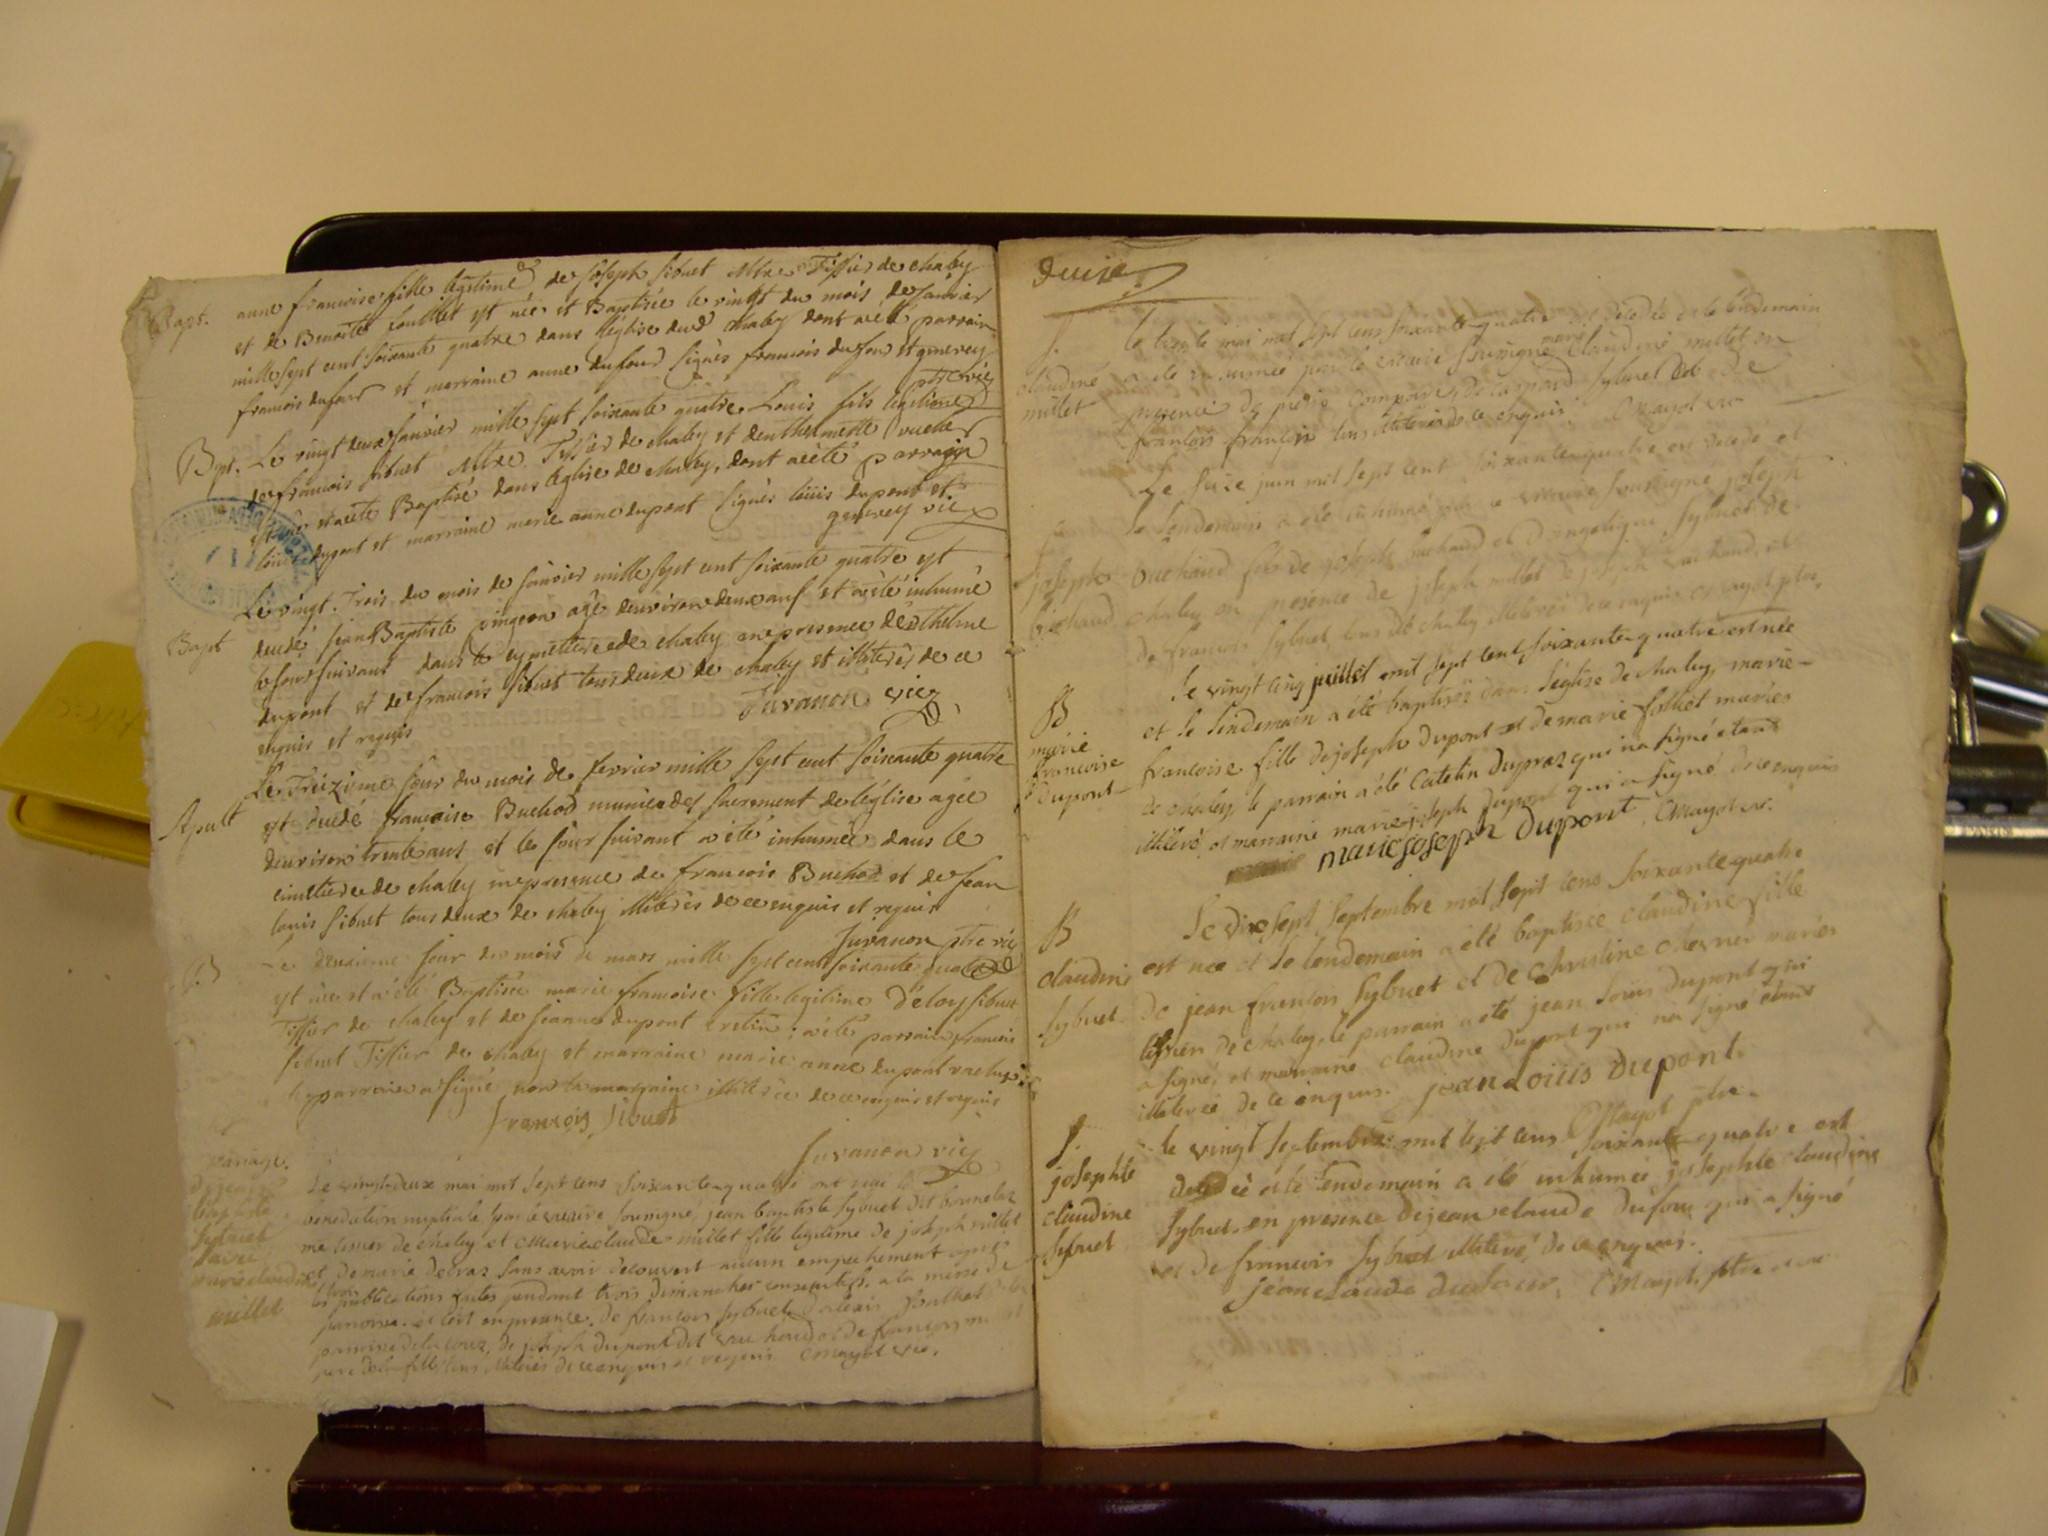 Bapt. anne francoise fille legitime de Joseph sibuet Mtre Tissier de chaley
et de Benoite foulliet est née et Baptisée le vingt du mois de Janvier
mille sept cent soixante quatre dans l'église dud chaley dont a été parrain
francois dufour et marraine anne dufour signés francois dufour et guerrey
ptre vic
Bpt. Le vingt deux Janvier mille sept soixante quatre Louis fils legitime
de francois sibuet Mtre Tissier de chaley et d'enthelmette
est né et a été Baptisé dans l'église de chaley, dont a été parrain
louis dupont et marraine marie anne dupont signés louis dupont et
guerrey vic
Le vingt Trois du mois de Janvier mille sept cent soixante quatre est
Bapt decedé Jean Baptiste pingeon agé d'environ deux ans et a été inhumé
le Jour suivant dans le cymettiere de chaley en presence d'enthelme
dupont et de francois sibuet tous deux de chaley et illiterés de ce
enquis et requis Juvanon vic
Le Treizieme Jour du mois de fevrier mille sept cent soixante quatre
Sepult est decedé francoise Buchod munie des sacrement de l'église agée
d'environ trente ans et le Jour suivant a été inhumée dans le
cimetiere de chaley en presence de francois Buchod et de Jean
louis sibuet tous deux de chaley illiterés de ce enquis et requis
Juvanon ptre vic
B Le deuxieme Jour du mois de mars mille sept cent soixante quatre
est née et a été Baptisée marie francoise fille legitime d'éloy sibuet
Tissier de chaley et de Jeanne dupont a été parrain francois
sibuet Tissier de chaley et marraine marie anne dupont
le parrain a signé non la marraine illiterée de ce enquis et requis
francois sibuet
Juvanon vic
mariage.
de jean
baptiste
sybuet
avec
marie claudine
millet
Le vingt deux mai mil sept cens soixante quatre ont reçu la
benediction nuptiale par le vicaire soussigné, jean baptiste sybuet dit
me tissier de chaley et marie claude millet fille legitime de joseph millet
et de marie decraz sans avoir decouvert aucun empechement après
les publications faites pendant trois dimanches consecutifs a la messe de
paroisse. et ce en presence de francois sybuet, d'alexis
paroisse de la de joseph dupont dit et de francois
pere de la fille tous illiterés de ce enquis et requis Mayot vic.
duije
S.
claudine
millet
le trente mai mil sept cens soixante quatre est decedée et le lendemain
a été inhumée par le vicaire soussigné marie claudine millet en
presence de pierre et de gaspard sybuet et de
francois francois tous illiterés de ce enquis. Mayot vic
Le seize juin mil sept cent soixante quatre est decedé et
le lendemain a été inhumé par le vicaire soussigné joseph
joseph buchaud fils de joseph buchaud et d'angelique sybuet de
buchaud chaley en presence de joseph millet de joseph buchaud, et
de francois sybuet, tous de chaley illiterés de ce enquis Mayot ptre.
B
marie
francoise
dupont
Le vingt cinq juillet mil sept cent soixante quatre est née
et le lendemain a été baptisée dans l'église de chaley, marie
francoise fille de joseph dupont et de marie folliet mariés
de chaley, le parrain a été Catelin dupraz qui n'a signé etant
illiteré, et marraine marie joseph dupont qui a signé de ce enquis
marie joseph dupont. Mayot vic.
B
claudine
sybuet
Le dix sept septembre mil sept cens soixante quatre
est née et le lendemain a été baptisée claudine fille
de jean francois sybuet et de christine chevrier mariés
tissier de chaley, le parrain a été jean louis dupont qui
a signé, et marraine claudine dupont qui n'a signé etant
illiterée de ce enquis. jean Loüis dupont.
Mayot ptre.
S.
josephte
claudine
sybuet
le vingt septembre mil sept cens soixante quatre est
decedée et le lendemain a été inhumée josephte claudine
sybuet en presence de jean claude dufour qui a signé
et de francois sybuet illiteré de ce enquis.
jean claude dufour. Mayot ptre